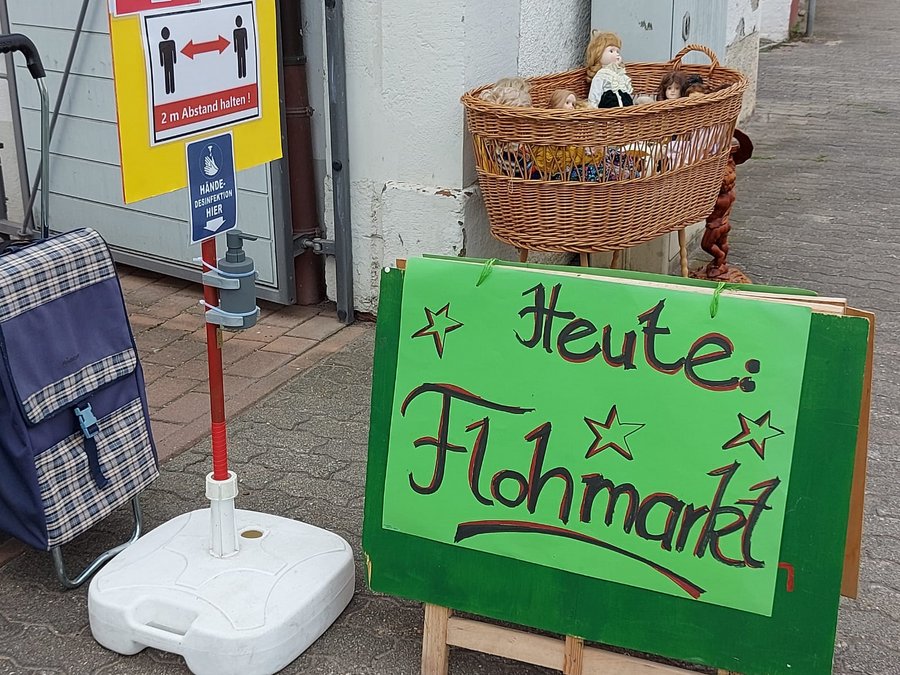 2 m Abstand halten !
HÄNDE-
DESINFEKTION
HIER
Heute:
Flohmarkt